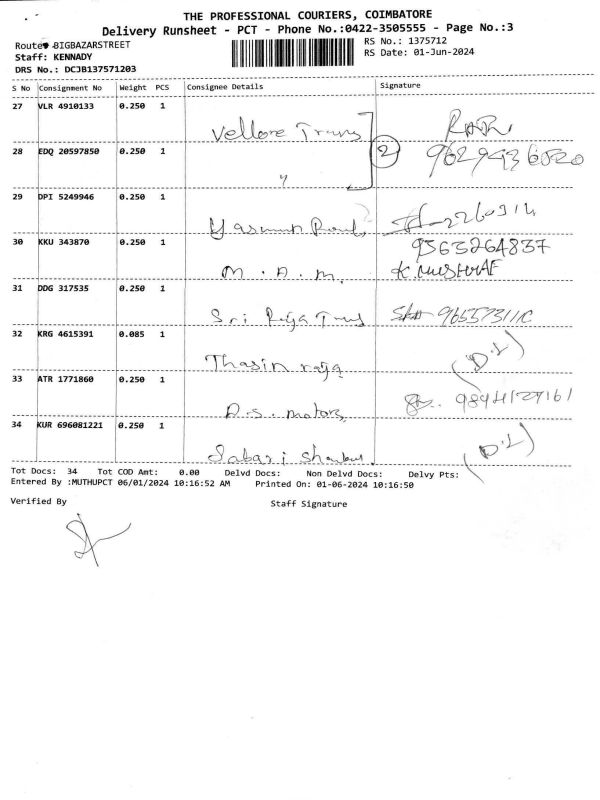 THE PROFESSIONAL COURIERS, COIMBATORE
Delivery Runsheet - PCT - Phone No.:0422-3505555 - Page No.:3
Route: BIGBAZARSTREET
RS No.: 1375712
Staff: KENNADY
RS Date: 01-Jun-2024
DRS No.: DCJB137571203
S No Consignment No Weight PCS Consignee Details Signature
27 VLR 4910133 0.250 1
Vellore Trans
28 EDQ 20597850 0.250 1
2
"
29 DPI 5249946 0.250 1
30 KKU 343870 0.250 1
9363264837
M. A. M.
31 DDG 317535 0.250 1
Sri Raja Trans
32 KRG 4615391 0.085 1
Thasin raja
(D.L)
33 ATR 1771860 0.250 1
A.S. motors
9894127161
34 KUR 696081221 0.250 1
Sabari
(D.L)
Tot Docs: 34 Tot COD Amt: 0.00 Delvd Docs: Non Delvd Docs: Delvy Pts:
Entered By :MUTHUPCT 06/01/2024 10:16:52 AM Printed On: 01-06-2024 10:16:50
Verified By Staff Signature